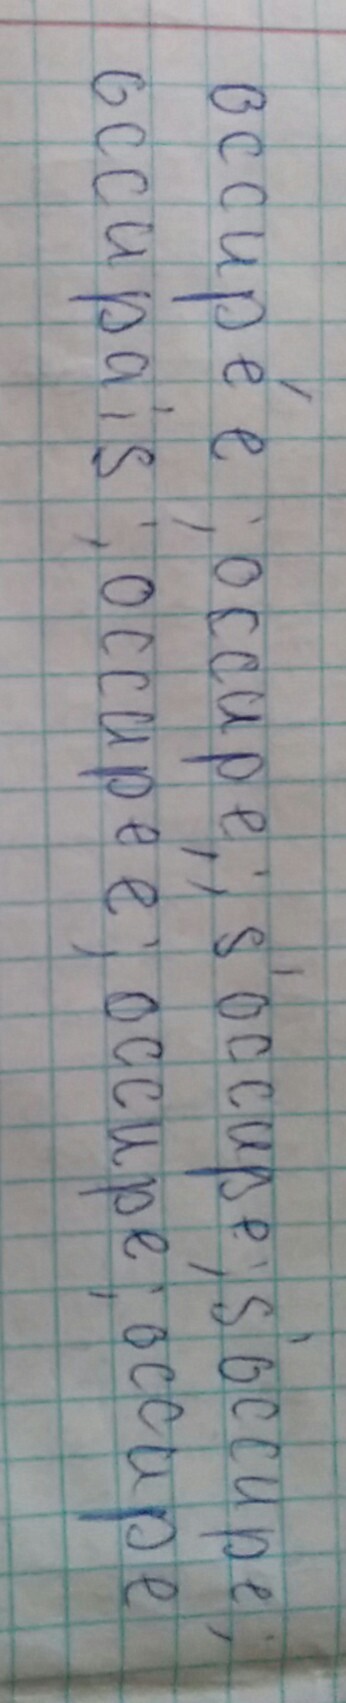 occupée; occupe,; s'occupe; s'occupe;
occupais; occupee; occupe; occupe